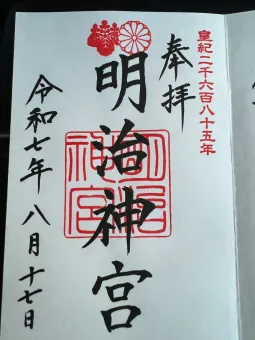 皇紀二千六百八十五年
奉拝
明治神宮
明治神宮
令和七年 八月 十七日